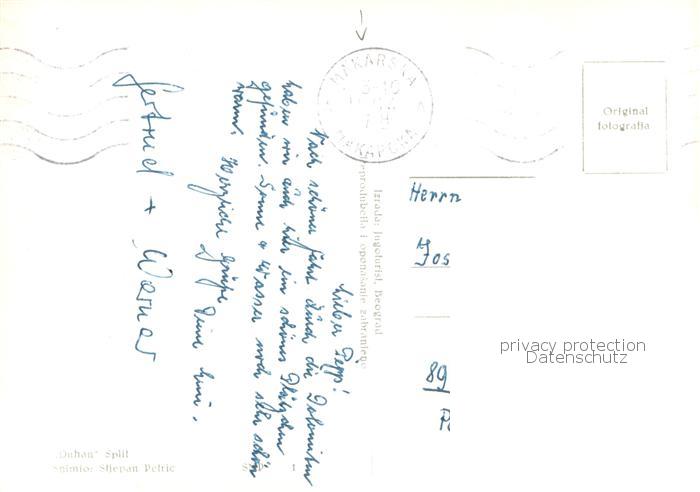 Lieber Pepp!
Nach schöner Fahrt durch die Dolomiten
haben wir auch hier ein schönes Plätzchen
gefunden. Sonne + Wasser noch sehr schön
warm. Herzliche Grüße
Deine
Gertrud + Werner
MAKARSKA
МАКАРСКА
Original
fotografia
Izrada: Jugoturist, Beograd
reprodukcija i oponašanje zabranjeno
Herrn
Jos
89
privacy protection
Datenschutz
„Duhan" Split
Snimio: Stjepan Petric